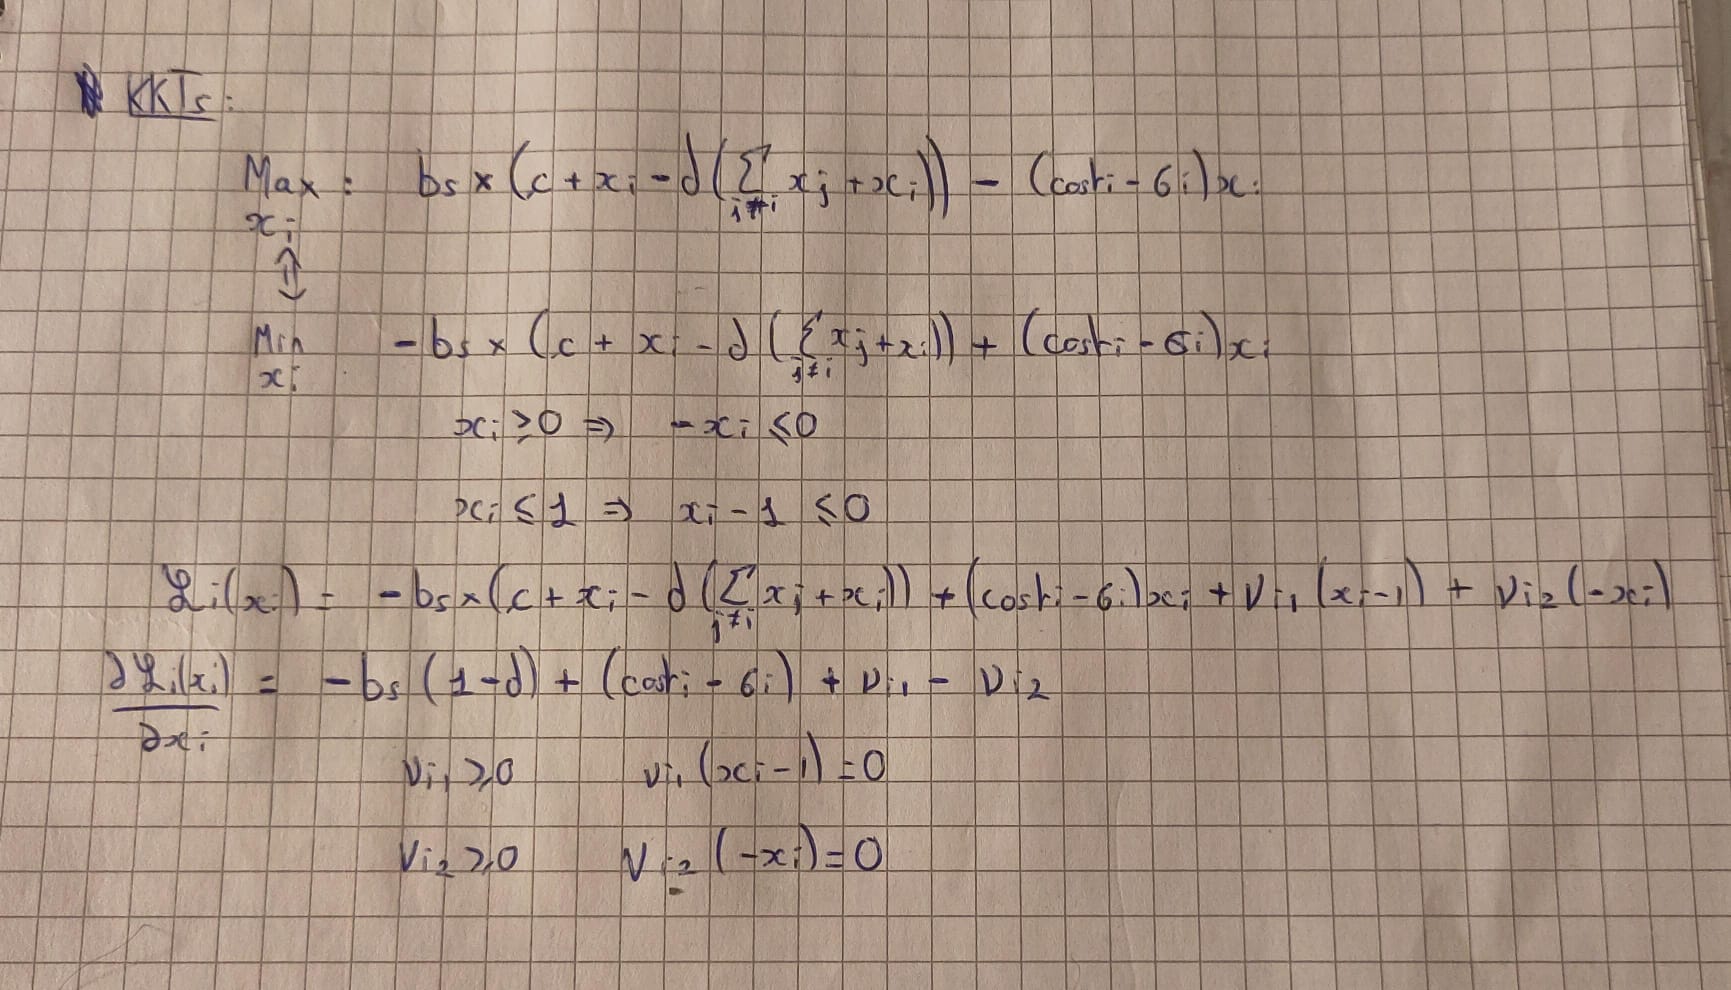 KKTs:
Max : bs × (c + xi - d(∑ xj + xi)) - (costi - 6i)xi
xi j≠i
⇕
Min -bs × (c + xi - d(∑ xj + xi)) + (costi - 6i)xi
xi j≠i
xi ≥ 0 ⇒ -xi ≤ 0
xi ≤ 1 ⇒ xi - 1 ≤ 0
ℒi(xi) = -bs × (c + xi - d(∑ xj + xi)) + (costi - 6i)xi + νi1 (xi - 1) + νi2 (-xi)
j≠i
∂ℒi(xi) = -bs (1 - d) + (costi - 6i) + νi1 - νi2
∂xi
νi1 ≥ 0 νi1 (xi - 1) = 0
νi2 ≥ 0 νi2 (-xi) = 0